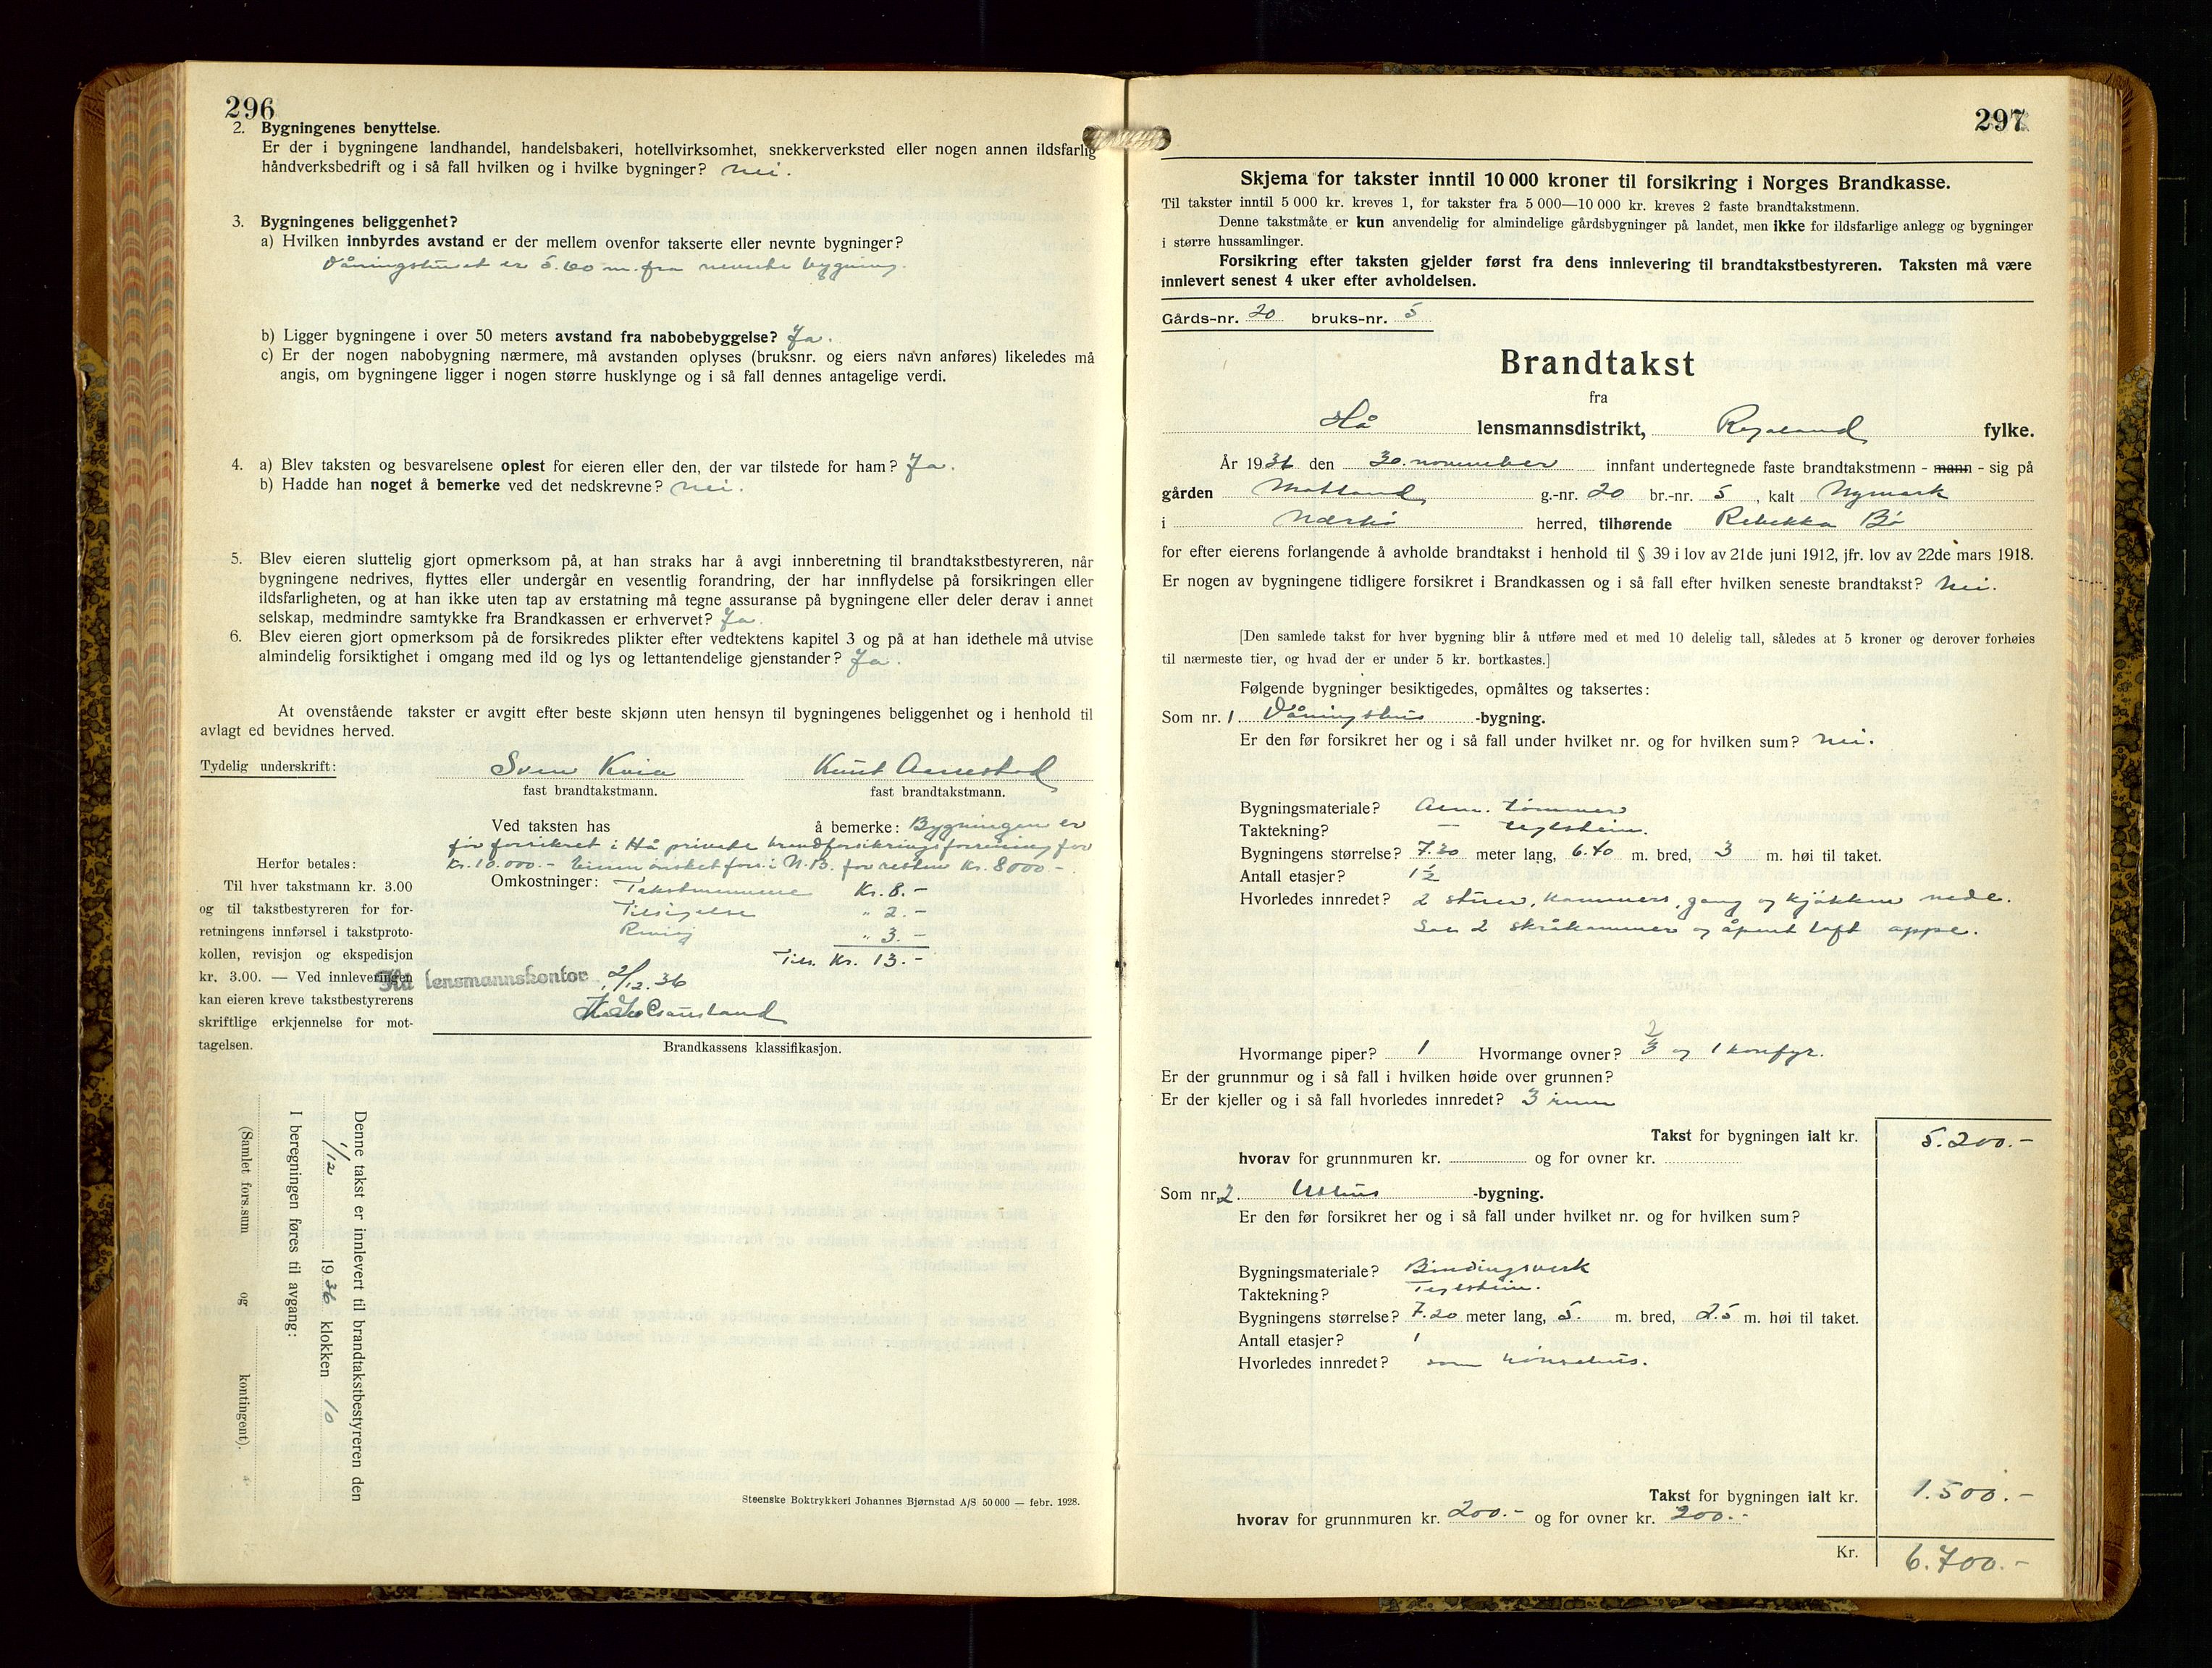 296
2. Bygningenes benyttelse.
Er der i bygningene landhandel, handelsbakeri, hotellvirksomhet, snekkerverksted eller nogen annen ildsfarlig
håndverksbedrift og i så fall hvilken og i hvilke bygninger? Nei.
3. Bygningenes beliggenhet?
a) Hvilken innbyrdes avstand er der mellem ovenfor takserte eller nevnte bygninger?
Våningshuset er 5.60 m. fra nevnte bygning.
b) Ligger bygningene i over 50 meters avstand fra nabobebyggelse? Ja.
c) Er der nogen nabobygning nærmere, må avstanden oplyses (bruksnr. og eiers navn anføres) likeledes må
angis, om bygningene ligger i nogen større husklynge og i så fall dennes antagelige verdi.
4. a) Blev taksten og besvarelsene oplest for eieren eller den, der var tilstede for ham? Ja.
b) Hadde han noget å bemerke ved det nedskrevne? Nei.
5. Blev eieren sluttelig gjort opmerksom på, at han straks har å avgi innberetning til brandtakstbestyreren, når
bygningene nedrives, flyttes eller undergår en vesentlig forandring, der har innflydelse på forsikringen eller
ildsfarligheten, og at han ikke uten tap av erstatning må tegne assuranse på bygningene eller deler derav i annet
selskap, medmindre samtykke fra Brandkassen er erhvervet? Ja.
6. Blev eieren gjort opmerksom på de forsikredes plikter efter vedtektens kapitel 3 og på at han idethele må utvise
almindelig forsiktighet i omgang med ild og lys og lettantendelige gjenstander? Ja.
At ovenstående takster er avgitt efter beste skjønn uten hensyn til bygningenes beliggenhet og i henhold til
avlagt ed bevidnes herved.
Tydelig underskrift: Sven Kvia Knut Aanestad
fast brandtakstmann. fast brandtakstmann.
Ved taksten has å bemerke: Bygningen er
før forsikret i Hå private brandforsikringsforening for
Kr. 10.000.- ønsket fors. i N.B. for resten Kr. 8000.-
Omkostninger: Takstmennene Kr. 8.-
Tilsigelse " 2.-
" 3.-
Tils. Kr. 13.-
Hå lensmannskontor 2/12.36
Herfor betales:
Til hver takstmann kr. 3.00
og til takstbestyreren for for-
retningens innførsel i takstproto-
kollen, revisjon og ekspedisjon
kr. 3.00. — Ved innleveringen
kan eieren kreve takstbestyrerens
skriftlige erkjennelse for mot-
tagelsen.
Brandkassens klassifikasjon.
Denne takst er innlevert til brandtakstbestyreren den
1/12 1936 klokken 10
I beregningen føres til avgang:
(Samlet fors.sum og kontingent).
Steenske Boktrykkeri Johannes Bjørnstad A/S 50 000 — febr. 1928.
297
Skjema for takster inntil 10 000 kroner til forsikring i Norges Brandkasse.
Til takster inntil 5 000 kr. kreves 1, for takster fra 5 000—10 000 kr. kreves 2 faste brandtakstmenn.
Denne takstmåte er kun anvendelig for almindelige gårdsbygninger på landet, men ikke for ildsfarlige anlegg og bygninger
i større hussamlinger.
Forsikring efter taksten gjelder først fra dens innlevering til brandtakstbestyreren. Taksten må være
innlevert senest 4 uker efter avholdelsen.
Gårds-nr. 20 bruks-nr. 5
Brandtakst
fra
Hå lensmannsdistrikt, Rogaland fylke.
År 1936 den 30. november innfant undertegnede faste brandtakstmenn - mann - sig på
gården Motland g.-nr. 20 br.-nr. 5, kalt Nymark
i Nærbø herred, tilhørende Rebekka Bø
for efter eierens forlangende å avholde brandtakst i henhold til § 39 i lov av 21de juni 1912, jfr. lov av 22de mars 1918.
Er nogen av bygningene tidligere forsikret i Brandkassen og i så fall efter hvilken seneste brandtakst? Nei.
[Den samlede takst for hver bygning blir å utføre med et med 10 delelig tall, således at 5 kroner og derover forhøies
til nærmeste tier, og hvad der er under 5 kr. bortkastes.]
Følgende bygninger besiktigedes, opmåltes og taksertes:
Som nr. 1. Våningshus -bygning.
Er den før forsikret her og i så fall under hvilket nr. og for hvilken sum? Nei.
Bygningsmateriale? Alm. tømmer
Taktekning? — teglstein.
Bygningens størrelse? 7.20 meter lang, 6.40 m. bred, 3 m. høi til taket.
Antall etasjer? 1½
Hvorledes innredet? 2 stuer, kammers, gang og kjøkken nede.
Sør 2 skråkammer og åpent loft oppe.
Hvormange piper? 1 Hvormange ovner? 2 3 og 1 komfyr.
Er der grunnmur og i så fall i hvilken høide over grunnen?
Er der kjeller og i så fall hvorledes innredet? 3 rum
Takst for bygningen ialt kr. 5.200.-
hvorav for grunnmuren kr. og for ovner kr.
Som nr. 2. Uthus -bygning.
Er den før forsikret her og i så fall under hvilket nr. og for hvilken sum?
Bygningsmateriale? Bindingsverk
Taktekning? Teglstein.
Bygningens størrelse? 7.20 meter lang, 5. m. bred, 2.5 m. høi til taket.
Antall etasjer? 1
Hvorledes innredet? som hønsehus.
Takst for bygningen ialt kr. 1.500.-
hvorav for grunnmuren kr. 200.- og for ovner kr. 200.-
Kr. 6.700.-